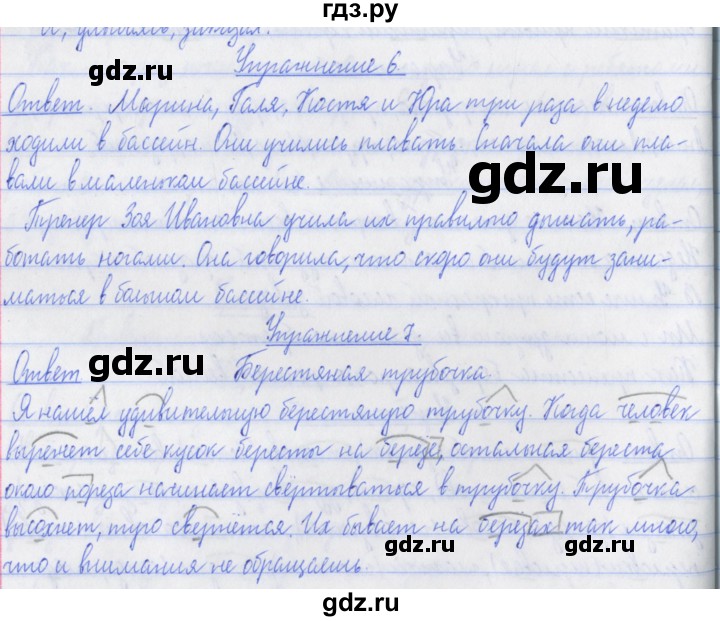 гдз.ру
Упражнение 6.
gdz.ru
Ответ. Марина, Галя, Костя и Юра три раза в неделю
ходили в бассейн. Они учились плавать. Сначала они пла-
вали в маленьком бассейне.
gdz.ru
Тренер Зоя Ивановна учила их правильно дышать, ра-
ботать ногами. Она говорила, что скоро они будут зани-
маться в большом бассейне.
Упражнение 7.
gdz.ru
Ответ Берестяная трубочка
Я нашёл удивительную берестяную трубочку. Когда человек
вырежет себе кусок бересты на берёзе, остальная береста
около пореза начинает свёртываться в трубочку. Трубочка
высохнет, туго свернётся. Их бывает на берёзах так много,
gdz.ru gdz.ru
что и внимания не обращаешь.
gdz.ru